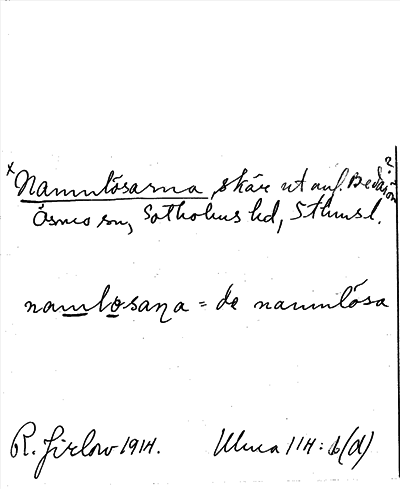 x Namnlösarna, skär ut anf. Bedarön?
Ösmo sn, Sotholms hd, Sthmsl.
namlosaṇa = de namnlösa
R. Jirlow 1914. Ulma 114: b(d)